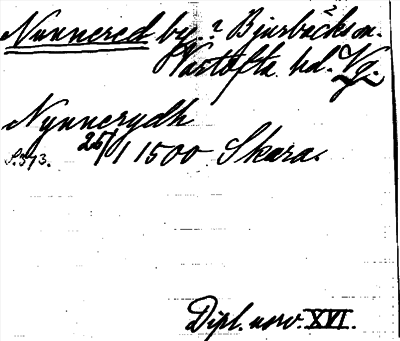 Nunnered by.? Bjurbäcks sn.
Vartofta hd. Vg.
Nynnerydh
S. 373. 25/1 1500 Skara.
Dipl. norv. XVI.